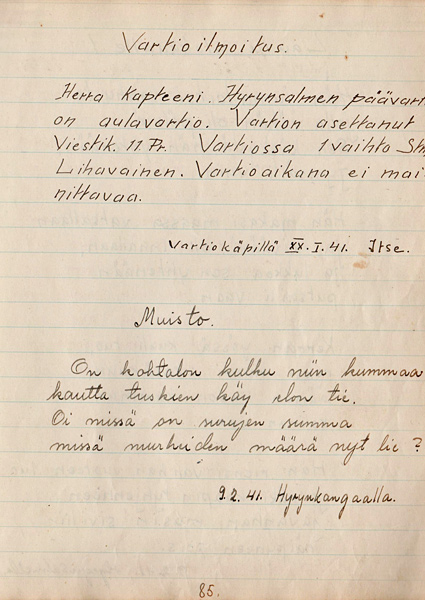 Vartioilmoitus.
Herra Kapteeni. Hyrynsalmen päävart
on aulavartio. Vartion asettanut
Viestik. 11 Pr. Vartiossa 1 vaihto Stm
Lihavainen. Vartioaikana ei mai
nittavaa.
Vartiokäpillä XX.I.41. Itse.
Muisto.
On kohtalon kulku niin kummaa
kautta tuskien käy elon tie.
Oi missä on surujen summa
missä murheiden määrä nyt lie ?
9.2.41. Hyrynkangaalla.
85.